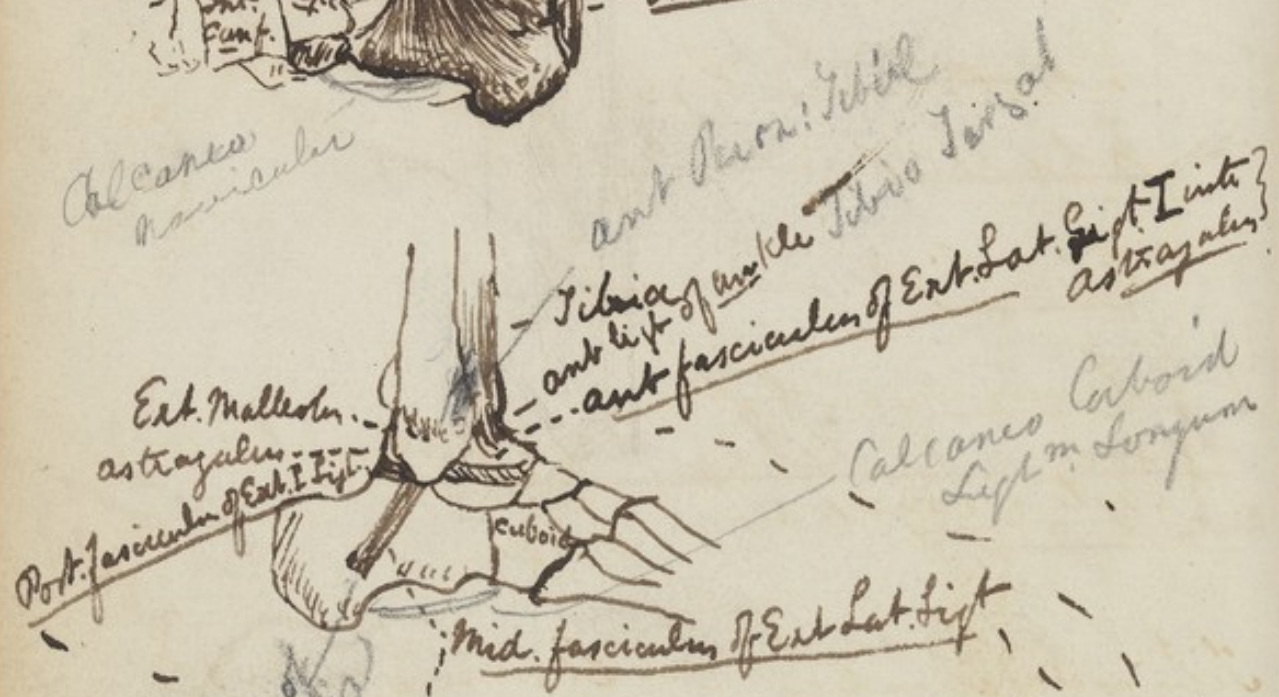 Cunf.
Calcaneo
navicular
ant Peron: Tibial
Tibio Tarsal
Tibia
ant ligt of ankle
ant fasciculus of Ext. Lat. Ligt. I into
astragalus
Ext. Malleolus
astragalus
Post. fasciculus of Ext. I Ligt.
Calcaneo Cuboid
Ligtm. Longum
cuboid
Mid. fasciculus of Ext Lat. Ligt